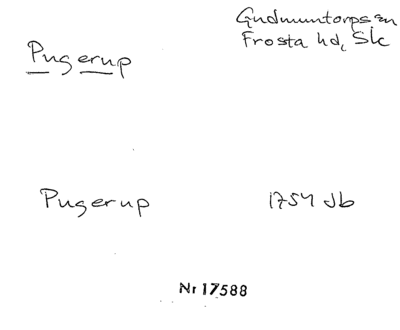 Gudmuntorps sn
Pugerup
Frosta hd, Sk
Pugerup 1754 Jb
Nr 17588